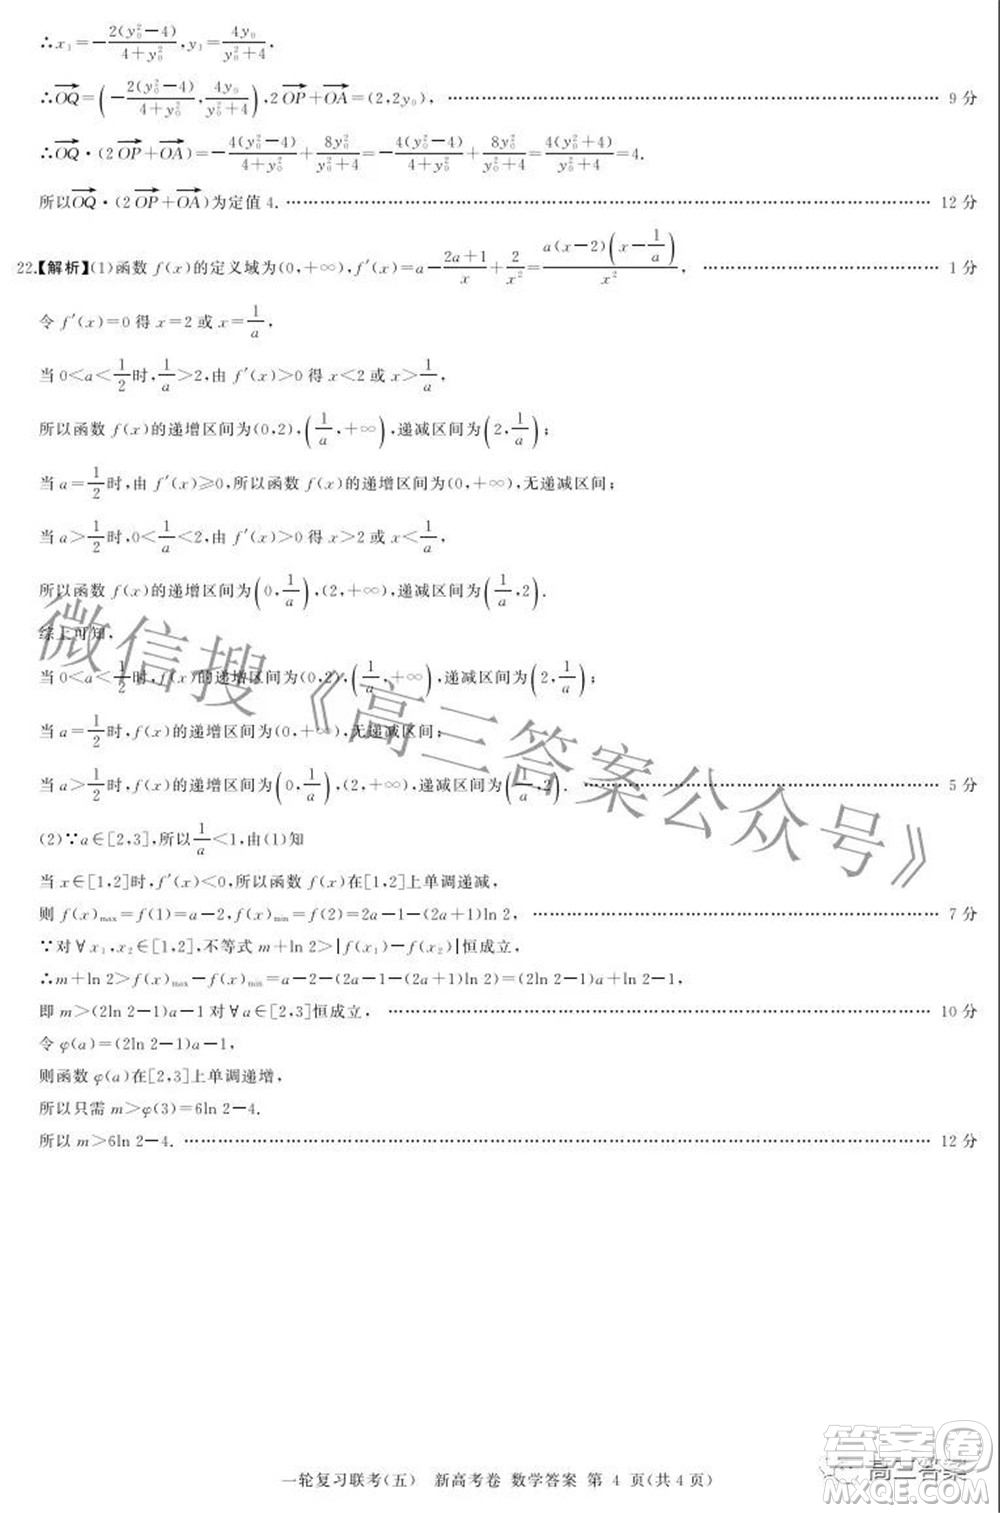 ∴x₁=−2(y₀²−4)/(4+y₀²),y₁=4y₀/(y₀²+4),
∴OQ→=(−2(y₀²−4)/(4+y₀²),4y₀/(y₀²+4)),2OP→+OA→=(2,2y₀),……9分
∴OQ→·(2OP→+OA→)=−4(y₀²−4)/(4+y₀²)+8y₀²/(y₀²+4)=−4(y₀²−4)/(4+y₀²)+8y₀²/(y₀²+4)=4.
所以OQ→·(2OP→+OA→)为定值4.……12分
22.【解析】(1)函数f(x)的定义域为(0,+∞),f′(x)=a−(2a+1)/x+2/x²=a(x−2)(x−1/a)/x²,……1分
令f′(x)=0得x=2或x=1/a,
当0<a<1/2时,1/a>2,由f′(x)>0得x<2或x>1/a,
所以函数f(x)的递增区间为(0,2),(1/a,+∞),递减区间为(2,1/a);
当a=1/2时,由f′(x)≥0,所以函数f(x)的递增区间为(0,+∞),无递减区间;
当a>1/2时,0<1/a<2,由f′(x)>0得x>2或x<1/a,
所以函数f(x)的递增区间为(0,1/a),(2,+∞),递减区间为(1/a,2).
综上可知,
当0<a<1/2时,f(x)的递增区间为(0,2),(1/a,+∞),递减区间为(2,1/a);
当a=1/2时,f(x)的递增区间为(0,+∞),无递减区间;
当a>1/2时,f(x)的递增区间为(0,1/a),(2,+∞),递减区间为(1/a,2).……5分
(2)∵a∈[2,3],所以1/a<1,由(1)知
当x∈[1,2]时,f′(x)<0,所以函数f(x)在[1,2]上单调递减,
则f(x)max=f(1)=a−2,f(x)min=f(2)=2a−1−(2a+1)ln 2,……7分
∵对∀x₁,x₂∈[1,2],不等式m+ln 2>|f(x₁)−f(x₂)|恒成立,
∴m+ln 2>f(x)max−f(x)min=a−2−(2a−1−(2a+1)ln 2)=(2ln 2−1)a+ln 2−1,
即m>(2ln 2−1)a−1对∀a∈[2,3]恒成立,……10分
令φ(a)=(2ln 2−1)a−1,
则函数φ(a)在[2,3]上单调递增,
所以只需m>φ(3)=6ln 2−4.
所以m>6ln 2−4.……12分
微信搜《高三答案公众号》
一轮复习联考(五) 新高考卷 数学答案 第 4 页(共4页)
高三答案
答案圈
MXQE.COM